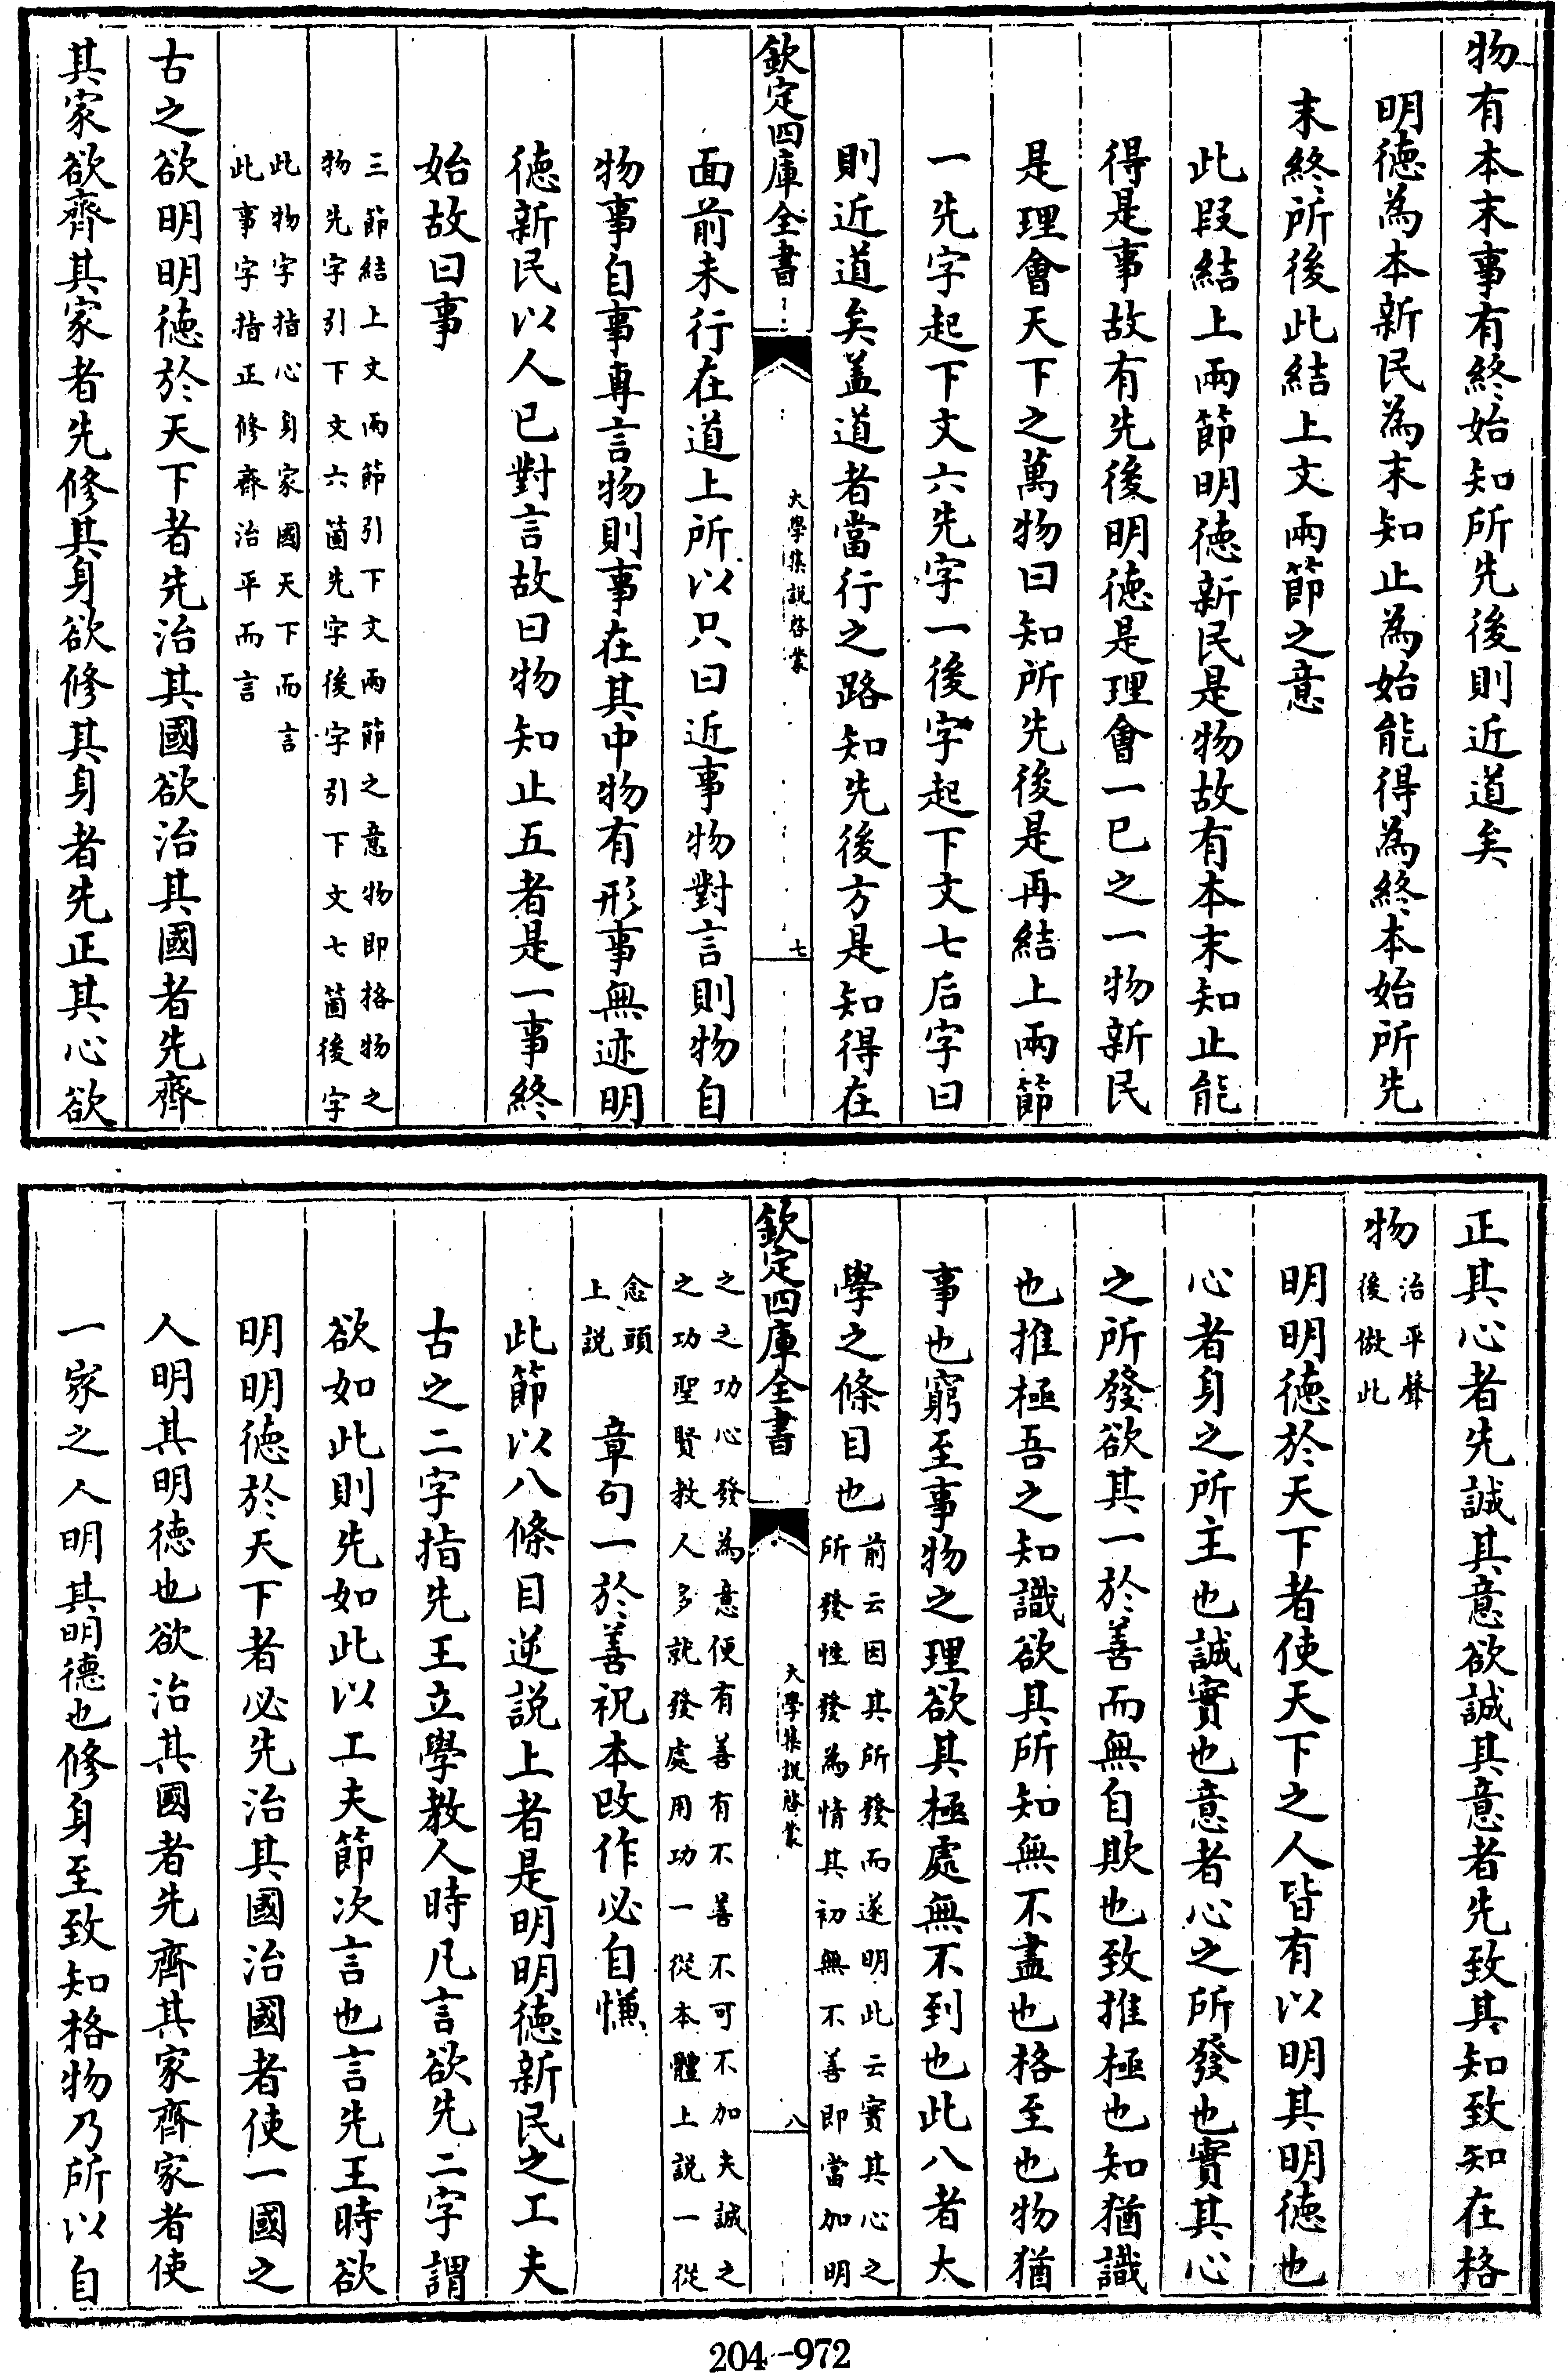 物有本末事有終始知所先後則近道矣
明徳為本新民為末知止為始能得為終本始所先
末終所後此結上文兩節之意
此段結上兩節明徳新民是物故有本末知止能
得是事故有先後明徳是理會一已之一物新民
是理會天下之萬物曰知所先後是再結上兩節
一先字起下文六先字一後字起下文七后字曰
則近道矣盖道者當行之路知先後方是知得在
欽定四庫全書
大學集説啓蒙
七
面前未行在道上所以只曰近事物對言則物自
物事自事専言物則事在其中物有形事無迹明
徳新民以人已對言故曰物知止五者是一事終
始故曰事
三節結上文兩節引下文兩節之意物即格物之
物先字引下文六箇先字後字引下文七箇後字
此物字指心身家國天下而言
此事字指正修齊治平而言
古之欲明明徳於天下者先治其國欲治其國者先齊
其家欲齊其家者先修其身欲修其身者先正其心欲
正其心者先誠其意欲誠其意者先致其知致知在格
物
治平聲
後倣此
明明徳於天下者使天下之人皆有以明其明徳也
心者身之所主也誠實也意者心之所發也實其心
之所發欲其一於善而無自欺也致推極也知猶識
也推極吾之知識欲其所知無不盡也格至也物猶
事也窮至事物之理欲其極處無不到也此八者大
學之條目也
前云因其所發而遂明此云實其心之
所發性發為情其初無不善即當加明
欽定四庫全書
大學集説啓蒙
八
之之功心發為意便有善有不善不可不加夫誠之
之功聖賢教人多就發處用功一從本體上説一從
念頭
上説
章句一於善祝本改作必自慊
此節以八條目逆説上者是明明徳新民之工夫
古之二字指先王立學教人時凡言欲先二字謂
欲如此則先如此以工夫節次言也言先王時欲
明明徳於天下者必先治其國治國者使一國之
人明其明徳也欲治其國者先齊其家齊家者使
一家之人明其明德也修身至致知格物乃所以自
204-972